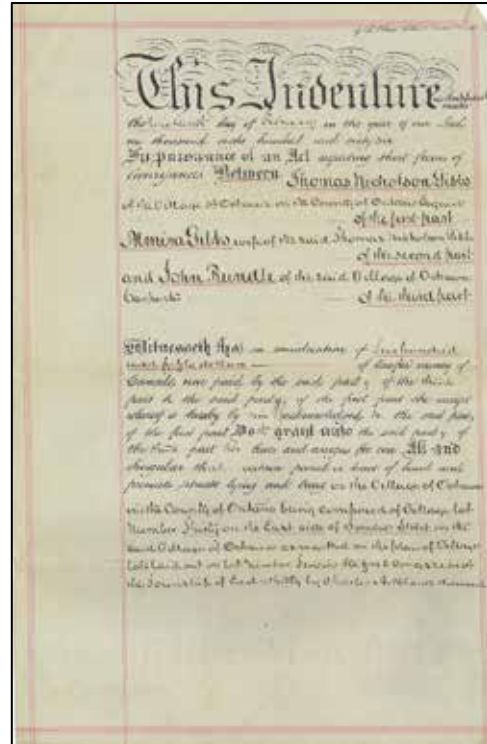 This Indenture made
the day of in the year of our Lord
one thousand eight hundred and sixty six
In pursuance of an Act respecting short forms of
conveyances Between Thomas Nicholson Gibbs
of the Village of Oshawa in the County of Ontario Esquire
of the first part
Almira Gibbs wife of the said Thomas Nicholson Gibbs
of the second part
and John Rundle of the said Village of Oshawa
of the third part
Witnesseth that in consideration of hundred
and fifty dollars of lawful money of
Canada now paid by the said party of the third
part to the said party of the first part the receipt
whereof is hereby by him acknowledged he the said party
of the first part Doth grant unto the said party of
the third part his heirs and assigns for ever All and
Singular that certain parcel or tract of land and
premises situate lying and being in the Village of Oshawa
in the County of Ontario being composed of Village Lot
Number on the East side of Street in the
said Village of Oshawa as marked on the plan of Village
Lots laid out on Lot Number in the first Concession of
the Township of East Whitby by